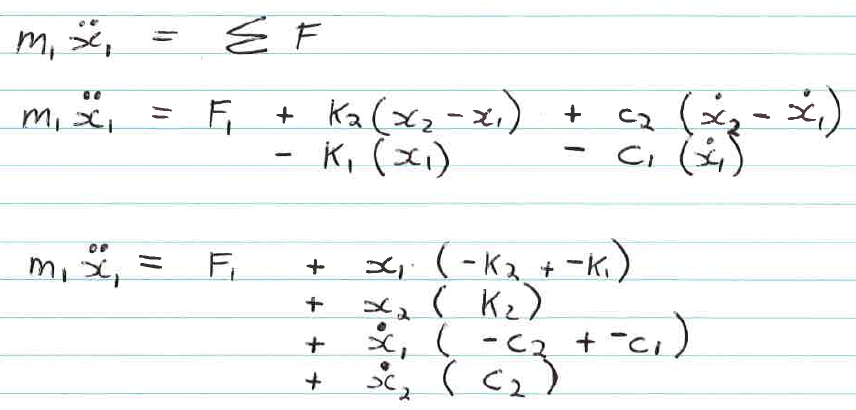 m₁ ẍ₁ = Σ F
m₁ ẍ₁ = F₁ + K₂(x₂ - x₁) + c₂ (ẋ₂ - ẋ₁)
- K₁ (x₁) - c₁ (ẋ₁)
m₁ ẍ₁ = F₁ + x₁ (-K₂ + -K₁)
+ x₂ ( K₂)
+ ẋ₁ ( -c₂ + -c₁)
+ ẋ₂ ( c₂ )